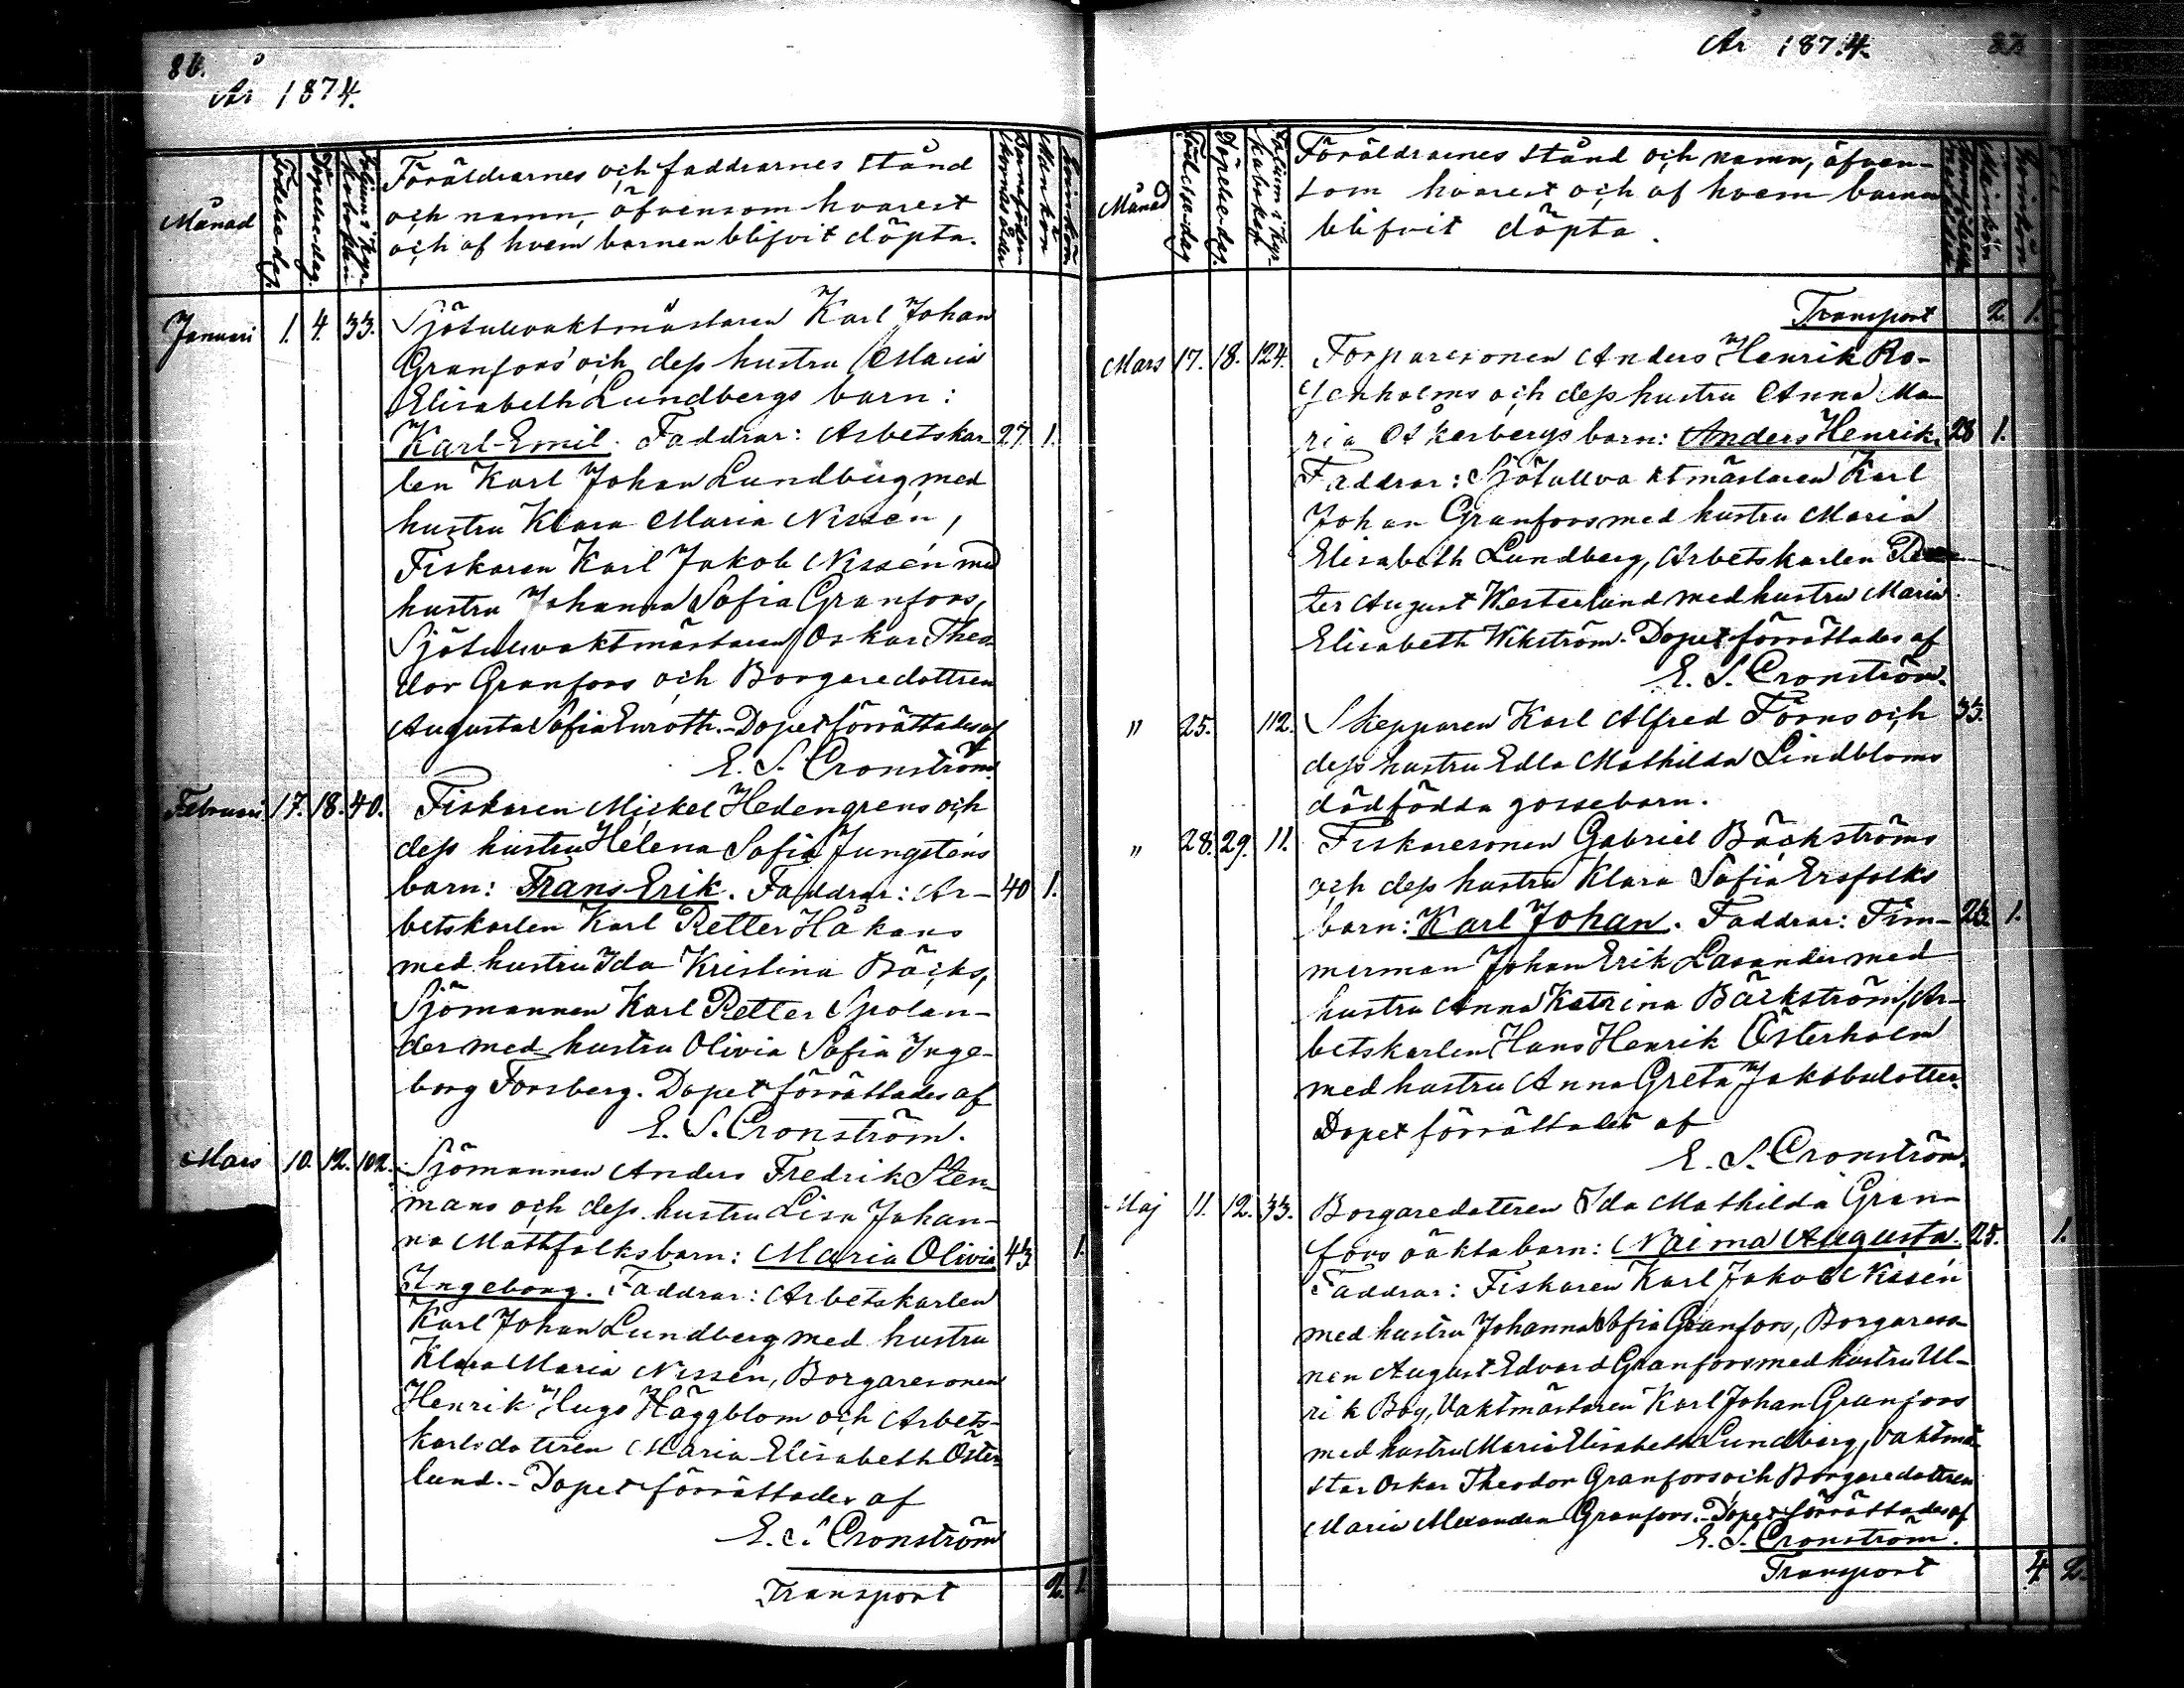 86.
År 1874.
Månad
Födelsedag.
Döpelsedag.
Folium i Kyrkoboken.
Föräldrarnes och faddrarnes stånd
och namn, äfvensom hvarest
och af hvem barnen blifvit döpta.
Barnaföderskornas ålder
Mankön
Qvinkön
Januari 1. 4. 33. Sjötullvaktmästaren Karl Johan
Granfors' och dess hustru Maria
Elisabeth Lundbergs barn:
Karl-Emil. Faddrar: Arbetskar- 27. 1.
len Karl Johan Lundberg med
hustru Klara Maria Nissén,
Fiskaren Karl Jakob Nissén med
hustru Johanna Sofia Granfors,
Sjötullvaktmästaren Oskar Theo-
dor Granfors och Borgaredottren
Augusta Sofia Enroth. - Dopet förrättades af
E. S. Cronström.
Februari 17. 18. 40. Fiskaren Mickel Hedengrens och
dess hustru Helena Sofia Jungstens
barn: Frans-Erik. Faddrar: Ar- 40 1.
betskarlen Karl Petter Håkans
med hustru Ida Kristina Bäcks,
Sjömannen Karl Petter Spolan-
der med hustru Olivia Sofia Inge-
borg Forsberg. Dopet förrättades af
E. S. Cronström.
Mars 10. 12. 102. Sjömannen Anders Fredrik Sten-
mans och dess hustru Lisa Johan-
na Mathfolks barn: Maria Olivia 43 1.
Ingeborg. Faddrar: Arbetskarlen
Karl Johan Lundberg med hustru
Klara Maria Nissén, Borgaresonen
Henrik Hugo Häggblom och Arbets-
karlsdottren Maria Elisabeth Öster-
lund. - Dopet förrättades af
E. S. Cronström
Transport 2. 1.
År 1874.
Månad
Födelsedag
Döpelsedag.
Folium i Kyrkobokn
Föräldrarnes stånd och namn, äfven-
som hvarest och af hvem barnen
blifvit döpta.
Mankön
Qvinkön
Transport 2. 1.
Mars 17. 18. 124. Torparesonen Anders Henrik Ro-
senholms och dess hustru Anna Ma-
ria Åkerbergs barn: Anders Henrik. 28 1.
Faddrar: Sjötullvaktmästaren Karl
Johan Granfors med hustru Maria
Elisabeth Lundberg, Arbetskarlen Pe-
ter August Westerlund med hustru Maria
Elisabeth Wikström. Dopet förrättades af
E. S. Cronström.
" 25. 112. Skepparen Karl Alfred Forns och 33.
dess hustru Edla Mathilda Lindbloms
dödfödda gossebarn.
" 28. 29. 11. Fiskaresonen Gabriel Bäckströms
och dess hustru Klara Sofia Ersfolks
barn: Karl Johan. Faddrar: Tim- 1.
merman Johan Erik Lavander med
hustru Anna Katrina Bäckström, Ar-
betskarlen Hans Henrik Österholm
med hustru Anna Greta Jakobsdotter.
Dopet förrättades af
E. S. Cronström.
Maj 11. 12. 33. Borgaredottren Ida Mathilda Gran-
fors oäkta barn: Naima Augusta. 25. 1.
Faddrar: Fiskaren Karl Jakob Nissén
med hustru Johanna Sofia Granfors, Borgareso-
nen August Edvard Granfors med hustru Ul-
rik Boy, Vaktmästaren Karl Johan Granfors
med hustru Maria Elisabeth Lundberg, Vaktmä-
star Oskar Theodor Granfors och Borgaredottren
Maria Alexandra Granfors. - Dopet förrättades af
E. S. Cronström.
Transport 4 2.